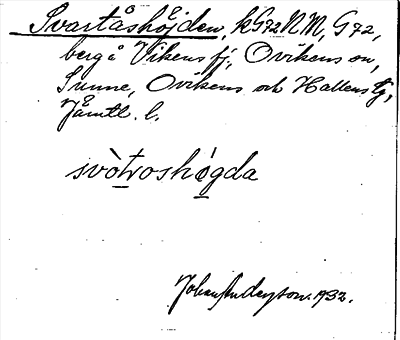 Svartåshöjden, kG72NM, G72,
berg å Vikens fj. Ovikens sn,
Sunne, Ovikens och Hallens tg,
Jämtl. l.
svòtroshøgda
Johan Anderson. 1932.